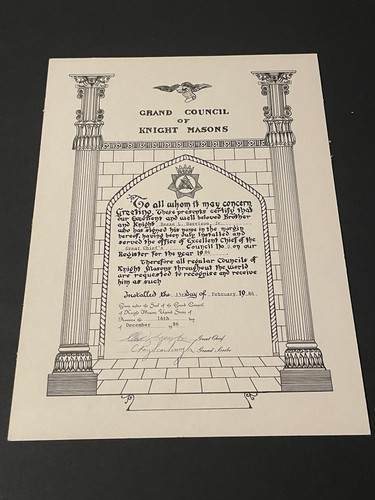 GRAND COUNCIL
OF
KNIGHT MASONS
To all whom it may concern
Greeting. These presents certify that
our Excellent and well beloved Brother
and Knight
who has signed his name in the margin
hereof, having been duly installed and
served the office of Excellent Chief of the
Great Chief's Council No. on our
Register for the year 1986
Therefore all regular Councils of
Knight Masons throughout the world
are requested to recognise and receive
him as such
Installed the day of February 1986.
Given under the Seal of the Grand Council
of Knight Masons United States of
America the 16th day
of December 1986
Great Chief
Grand Scribe